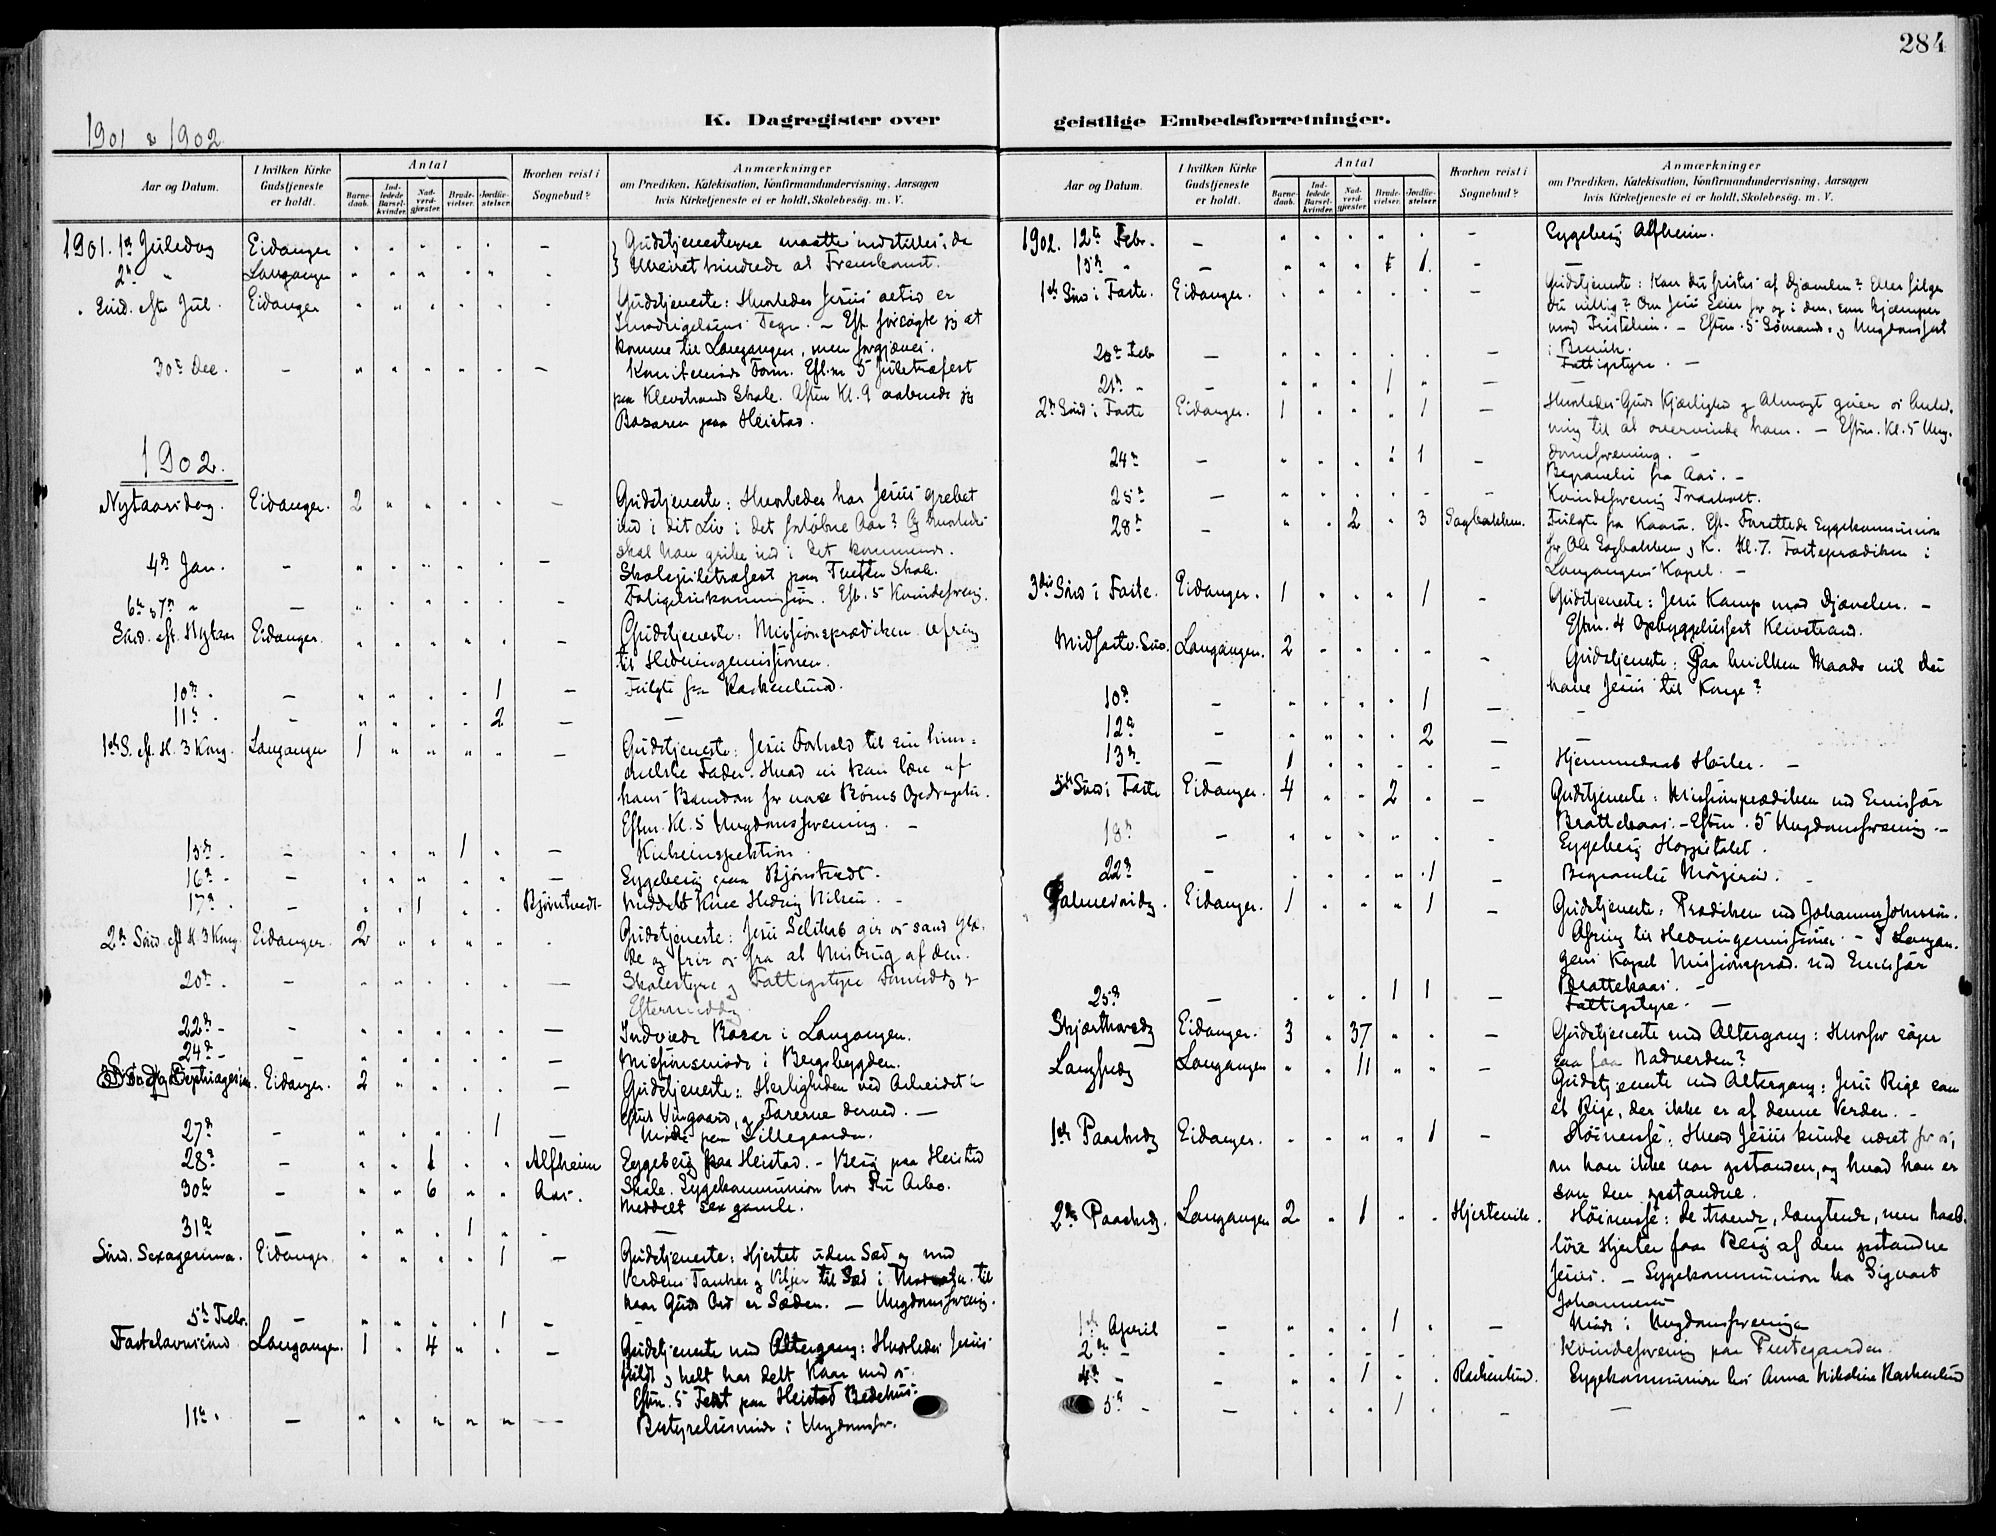 284
K. Dagregister over geistlige Embedsforretninger.
1901 & 1902
Aar og Datum. I hvilken Kirke Gudstjeneste er holdt. Antal Barnedaab. Indledede Barselkvinder. Nadverdgjester. Brudevielser. Jordfæstelser. Hvorhen reist i Sognebud? Anmærkninger om Prædiken, Katekisation, Konfirmandundervisning, Aarsagen hvis Kirketjeneste ei er holdt, Skolebesög. m. V.
1901. 1ste Juledag Eidanger Gudstjenesterne maatte indstilles, da
2den " Langangen Uveiret hindrede al Fremkomst.
Sönd. efter Jul. Eidanger Gudstjeneste: Hvorledes Jesus altid er
Tegn. – Eft. forsögte jeg at
komme til Langangen, men forgjæves.
30te Dec. Eftm. 5 Juletræfest
paa Klevstrands Skole. Aften Kl. 9 aabnede jeg
Basaren paa Heistad.
1902.
Nytaarsdag. Eidanger. 2 Gudstjeneste: Hvorledes har Jesus grebet
ind i dit Liv i det forløbne Aar? Og hvorledes
skal han gribe ind i det kommende.
4de Jan. Skolejuletræfest paa Tveten Skole.
6te & 7de " Eft. 5 Kvindeforenig.
Sönd. eft. Nytaar Eidanger. Gudstjeneste: Missionsprædiken. Ofring
til Hedningemissionen.
10de 1 Fulgte fra Rakkenlund.
11te 2
1ste S. eft. H. 3 Kong. Langangen 1 Gudstjeneste: Jesu Forhold til sin him-
melske Fader. Hvad vi kan lære af
hans Barndom for vore Börns Opdragelse.
Eftm. Kl. 5 Ungdomsforening. –
15de 1 Kirkeinspektion.
16de Sygebesög paa Bjönstvedt.
17de 1 Bjönstvedt Meddelt Hedvig Nilsen. –
2den Sönd. eft. H. 3 Kong. Eidanger. 2 Gudstjeneste: Jesu Selskab gir os sand Glæ-
de og frir os fra al Misbrug af den.
20de Skolestyre og Fattigstyre Formiddag &
Eftermiddag.
22de Indviede Basar i Langangen.
24de Missionsmöde i Bergsbygden.
Septuagesima. Eidanger. 2 Gudstjeneste: Herligheden ved Arbeidet i
Guds Vingaard, og Farerne derved. –
27de 1 Möde paa Lillegaarden.
28de 1 Alfheim Sygebesög paa Heistad. – Besög paa Heistad
30te 6 Aas. Skole. Sygekommunion hos Fru Arbo.
Meddelt sex gamle.
31te 1
Sönd. Sexagesima. Eidanger. 1 Gudstjeneste: Hjertet uden Sæd og med
Verdens Tanker og Vilje til Sæd i til
har Guds Ord er Sæden. – Ungdomsforenig.
5te Febr. 1
Fastelavnssönd. Langangen. 1 4 Gudstjeneste med Altergang: Hvorledes Jesus
fuldt og helt har delt Kaar med os.
Eftm. 5 Fest paa Heistad Bedehus.
11te Bestyrelsesmöde i Ungdomsfor.
Aar og Datum. I hvilken Kirke Gudstjeneste er holdt. Antal Barnedaab. Indledede Barselkvinder. Nadverdgjester. Brudevielser. Jordfæstelser. Hvorhen reist i Sognebud? Anmærkninger om Prædiken, Katekisation, Konfirmandundervisning, Aarsagen hvis Kirketjeneste ei er holdt, Skolebesög. m. V.
1902. 12te Febr. Sygebesög Alfheim.
15de " 1
1ste Sönd i Faste. Eidanger. Gudstjeneste: Kan du fristes af Djævelen? Eller fölger
du villig? Om Jesu Seier for og i dem, som kjæmper
mod Fristelsen. – Eftm. 5 Sömands- og Ungdomsfest
i Brevik.
20de Feb Fattigstyre. –
21de " 1
2den Sönd i Faste Eidanger. 1 1 Hvorledes Guds Kjærlighed og Almagt giver os Anled-
ning til at overvinde ham. – Eftm. Kl. 5 Ung-
domsforening. –
24de 1 Begravelse fra Aas. –
25de Kvindeforening Traaholt.
28de 2 3 Sagbakken. Fulgte fra Eft. Forrettede Sygekommunion
for Ole Sagbakken & K. Kl. 7. Fasteprædiken i
Langangens Kapel. –
3die Sönd i Faste. Eidanger. 1 1 Gudstjeneste: Jesu Kamp mod Djævelen. –
Eftm. 4 Opbyggelsesfest Klevstrand.
Midfaste-Sön. Langangen. 2 Gudstjeneste: Paa hvilken Maade vil du
have Jesus til Konge?
10de 1
12te 2
13de 1 Hjemmedaab –
5te Sönd i Faste Eidanger. 4 2 Gudstjeneste: Missionsprædiken ved Emissær
Brattekaas. – Eftm. 5 Ungdomsforening –
18de Sygebesög Hospitalet.
22de 1 Begravelse
Palmesöndag. Eidanger. 1 1 Gudstjeneste: Prædiken ved Johannes Johnson.
Ofring til Hedningemissionen – I Langan-
gens Kapel Missionspræd. ved Emissær
Brattekaas. –
25de 1 1 Fattigstyre. –
Skjærthorsdag Eidanger. 3 37 Gudstjeneste med Altergang: Hvorfor söger
saa faa Nadverden?
Langfredag Langangen 11 Gudstjeneste med Altergang: Jesu Rige som
et Rige, der ikke er af denne Verden. –
1ste Paaskedag Eidanger. 1 Höimesse: Hvad Jesus kunde været for os,
om han ikke var opstanden, og hvad han er
som den opstandne.
2den Paaskedag. Langangen 2 1 Hjertevik. Höimesse: De troende, længtende, men haab-
löse Hjerter faar Besög af den opstandne
Jesus. – Sygekommunion hos Sigvart
Johannesen
1ste April 1 Möde i Ungdomsforeningen
2den " Kvindeforening paa Prestegaarden.
4de " 1 Rakkenlund. Sygekommunion hos Anna Nikoline Rakkenlund
5te " 1